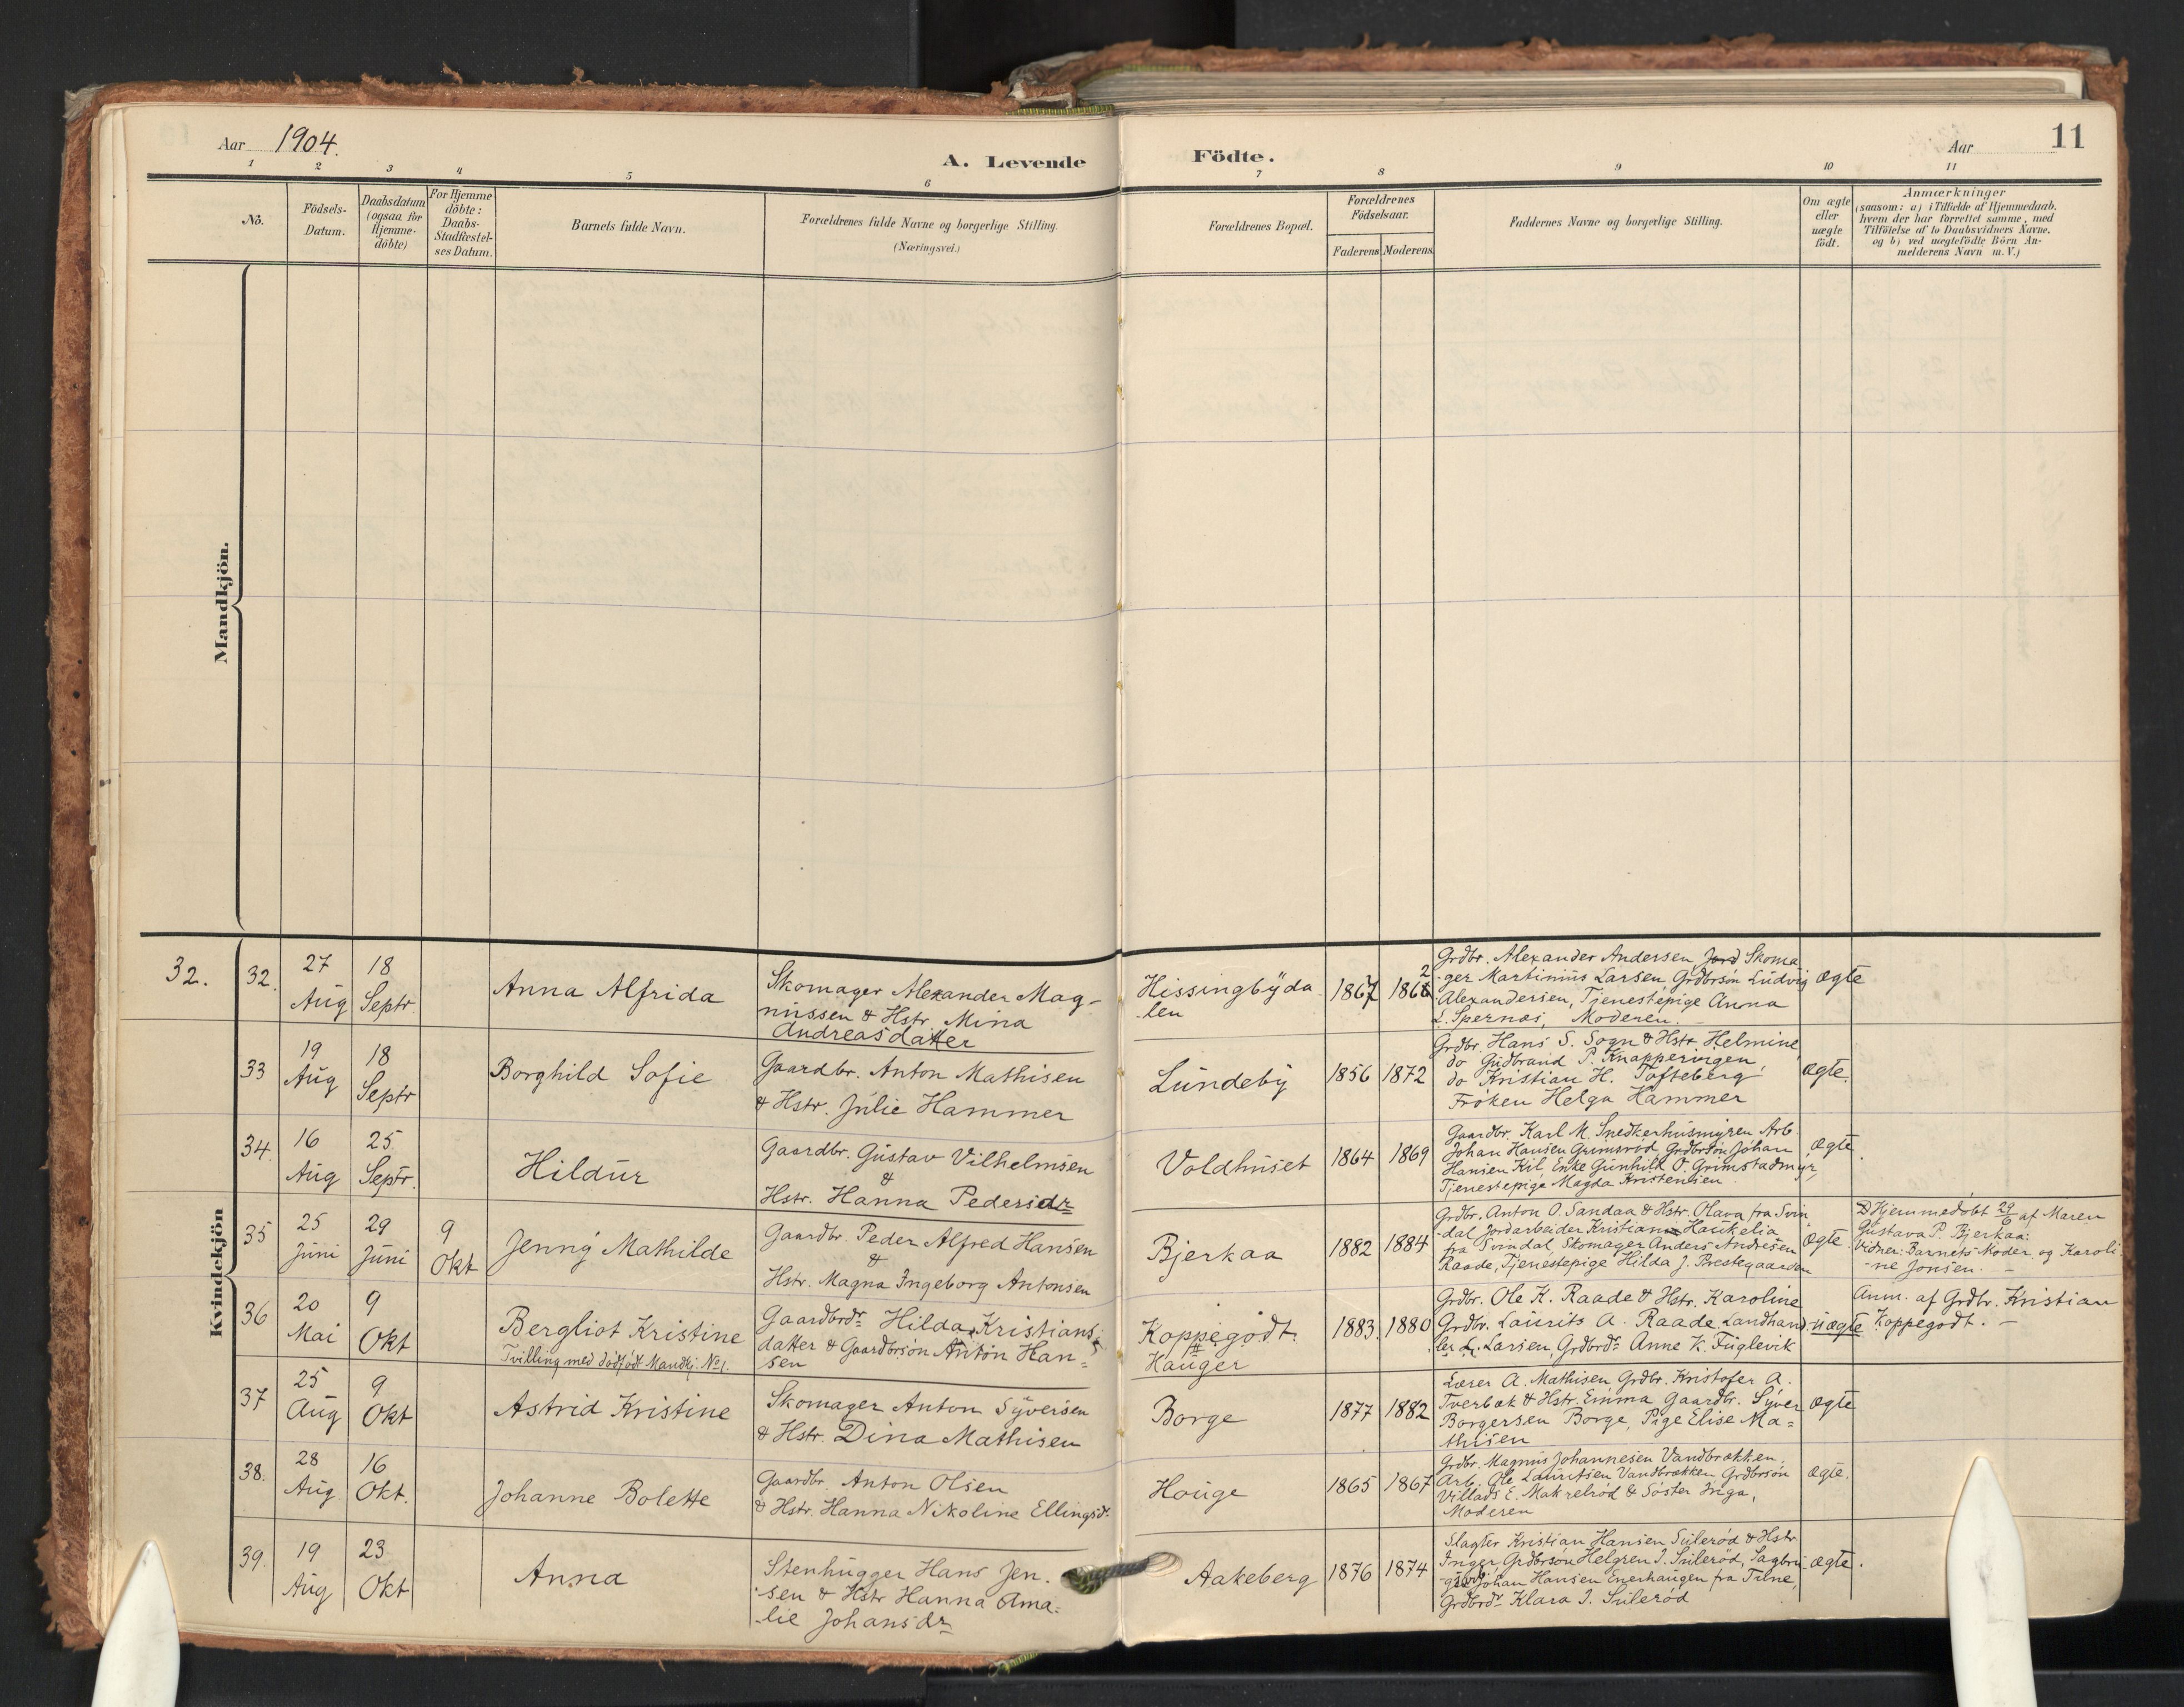 Aar 1904.
A. Levende
Födte.
Aar
11
1 2 3 4 5 6 7 8 9 10 11
No.
Födsels-
Datum.
Daabsdatum
(ogsaa for
Hjemme-
döbte)
For Hjemme
döbte:
Daabs-
Stadfæstel-
ses Datum.
Barnets fulde Navn.
Forældrenes fulde Navne og borgerlige Stilling.
(Næringsvei.)
Forældrenes Bopæl.
Forældrenes
Födselsaar.
Faderens Moderens
Faddernes Navne og borgerlige Stilling.
Om ægte
eller
uægte
födt.
Anmærkninger
(saasom: a) i Tilfælde af Hjemmedaab.
hvem der har forrettet samme, med
Tilföielse af to Daabsvidners Navne.
og b) ved uægtefödte Börn An-
melderens Navn m. V.)
Mandkjön.
Kvindekjön
32.
32.
27
Aug
18
Septr
Anna Alfrida
Skomager Alexander Mag-
nussen & Hstr. Mina
Andreasdatter
Hissingbyda
-len
1867
1862
Grdbr. Alexander Andersen Jord Skoma
-ger Martinius Larsen Grdbrsön Ludvig
Alexandersen, Tjenestepige Anna
L. Spernæs, Moderen.
ægte
33
19
Aug
18
Septr
Borghild Sofie
Gaardbr. Anton Mathisen
& Hstr. Julie Hammer
Lundeby
1856
1872
Grdbr. Hans S. Sogn & Hstr Helmine
do Gudbrand P. Knapperingen
do Kristian H. Tofteberg
Fröken Helga Hammer
ægte.
34.
16
Aug
25
Septr.
Hildur
Gaardbr. Gustav Vilhelmsen
&
Hstr. Hanna Pedersdr
Voldhuset
1864
1869
Gaardbr. Karl M. Snedkerhusmyren Arb.
Johan Hansen Grimsröd Grdbrsön Johan
Hansen Kil Enke Gunhild O. Grimstadmyr,
Tjenestepige Magda Kristensen
ægte.
35
25
Juni
29
Juni
9
Okt
Jenny Mathilde
Gaardbr. Peder Alfred Hansen
&
Hstr. Magna Ingeborg Antonsen
Bjerkaa
1882
1884
Grdbr. Anton O. Sandaa & Hstr. Olava fra Svin
-dal Jordarbeider Kristian Haukelia
fra Svindal, Skomager Anders Andresen
Raade, Tjenestepige Hilda J. Prestegaarden
ægte
Hjemmedöbt 29/6 af Maren
Gustava P. Bjerkaa:
Vidner: Barnets Moder og Karoli
-ne Jonsen. —
36
20
Mai
9
Okt
Bergliot Kristine
Tvilling med dödfödt Mandkj. No 1.
Gaardbrdr Hilda Kristians-
datter & Gaardbrsön Anton Han-
sen
Koppegodt.
Hauger
1883.
1880
Grdbr. Ole K. Raade & Hstr. Karoline
Grdbr. Laurits A. Raade Landhand
ler L. Larsen, Grdbrdr Anne K. Fuglevik
uægte
Anm. af Grdbr. Kristian
Koppegodt. —
37
25
Aug
9
Okt
Astrid Kristine
Skomager Anton Syversen
& Hstr. Dina Mathisen
Borge
1877
1882
Lærer A. Mathisen Grdbr. Kristofer A.
Tverbæk & Hstr. Emma Gaardbr. Syver
Borgersen Borge, Pige Elise Ma=
thisen
ægte
38.
28
Aug.
16
Okt.
Johanne Bolette
Gaardbr. Anton Olsen
& Hstr. Hanna Nikoline Ellingsdr.
Houge
1865
1867
Grdbr. Magnus Johannesen Vandbrækken,
Arb. Ole Lauritsen Vandbrækken Grdbrsön
Villads E. Makrelröd & Söster Inga,
Moderen
ægte.
39.
19
Aug
23
Okt
Anna
Stenhugger Hans Jen.
-sen & Hstr Hanna Ama-
-lie Johansdr
Aakeberg
1876
1874
Slagter Kristian Hansen Sulerød & Hstr.
Inger Grdbrsön Helgren I. Sulerød, Sagbru
Johan Hansen Enerhaugen fra Tune,
Grdbrdr Klara I. Sulerød
ægte.